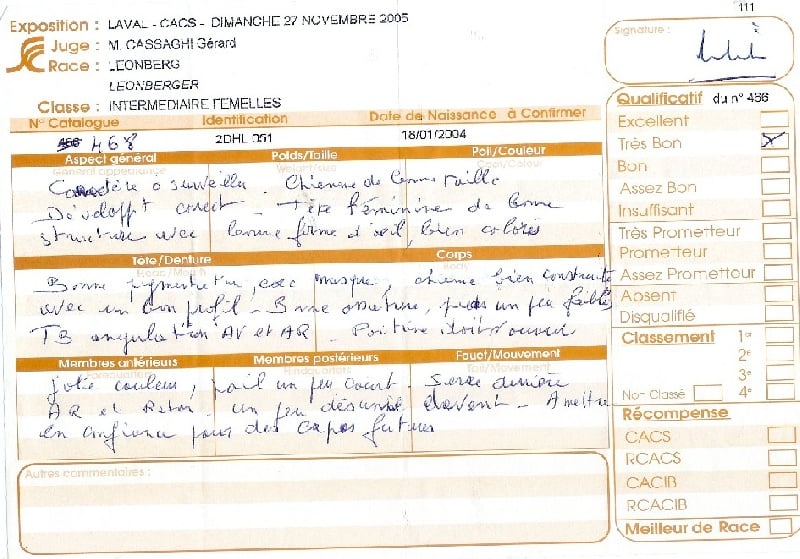 111
Exposition : LAVAL - CACS - DIMANCHE 27 NOVEMBRE 2005
Juge : M. CASSAGHI Gérard
Race : LEONBERG
LEONBERGER
Classe : INTERMEDIAIRE FEMELLES
N° Catalogue Identification Date de Naissance à Confirmer
466 468 2DHL 051 18/01/2004
Aspect général Poids/Taille Poil/Couleur
General appearance Weight/size Coat/Colour
Caractère à surveiller. Chienne de bonne taille
Dévelopt correct - Tête féminine de bonne
structure avec bonne forme d'oeil, bien colorés
Tête/Denture Corps
Head/Mouth Body
Bonne pigmentation, avec masque, chienne bien construite
avec un bon profil - Bonne ossature, pieds un peu faibles
TB angulation AV et AR - Poitrine doit s'ouvrir
Membres antérieurs Membres postérieurs Fouet/Mouvement
Forequarters Hindquarters Tail/Movement
jolie couleur, poil un peu court. Serré derrière
AR et un peu désuni devant - A mettre
en confiance pour des expos futures
Autres commentaires :
Signature :
Qualificatif du n° 466
Excellent
Très Bon X
Bon
Assez Bon
Insuffisant
Très Prometteur
Prometteur
Assez Prometteur
Absent
Disqualifié
Classement 1er
2e
3e
Non Classé 4e
Récompense
CACS
RCACS
CACIB
RCACIB
Meilleur de Race